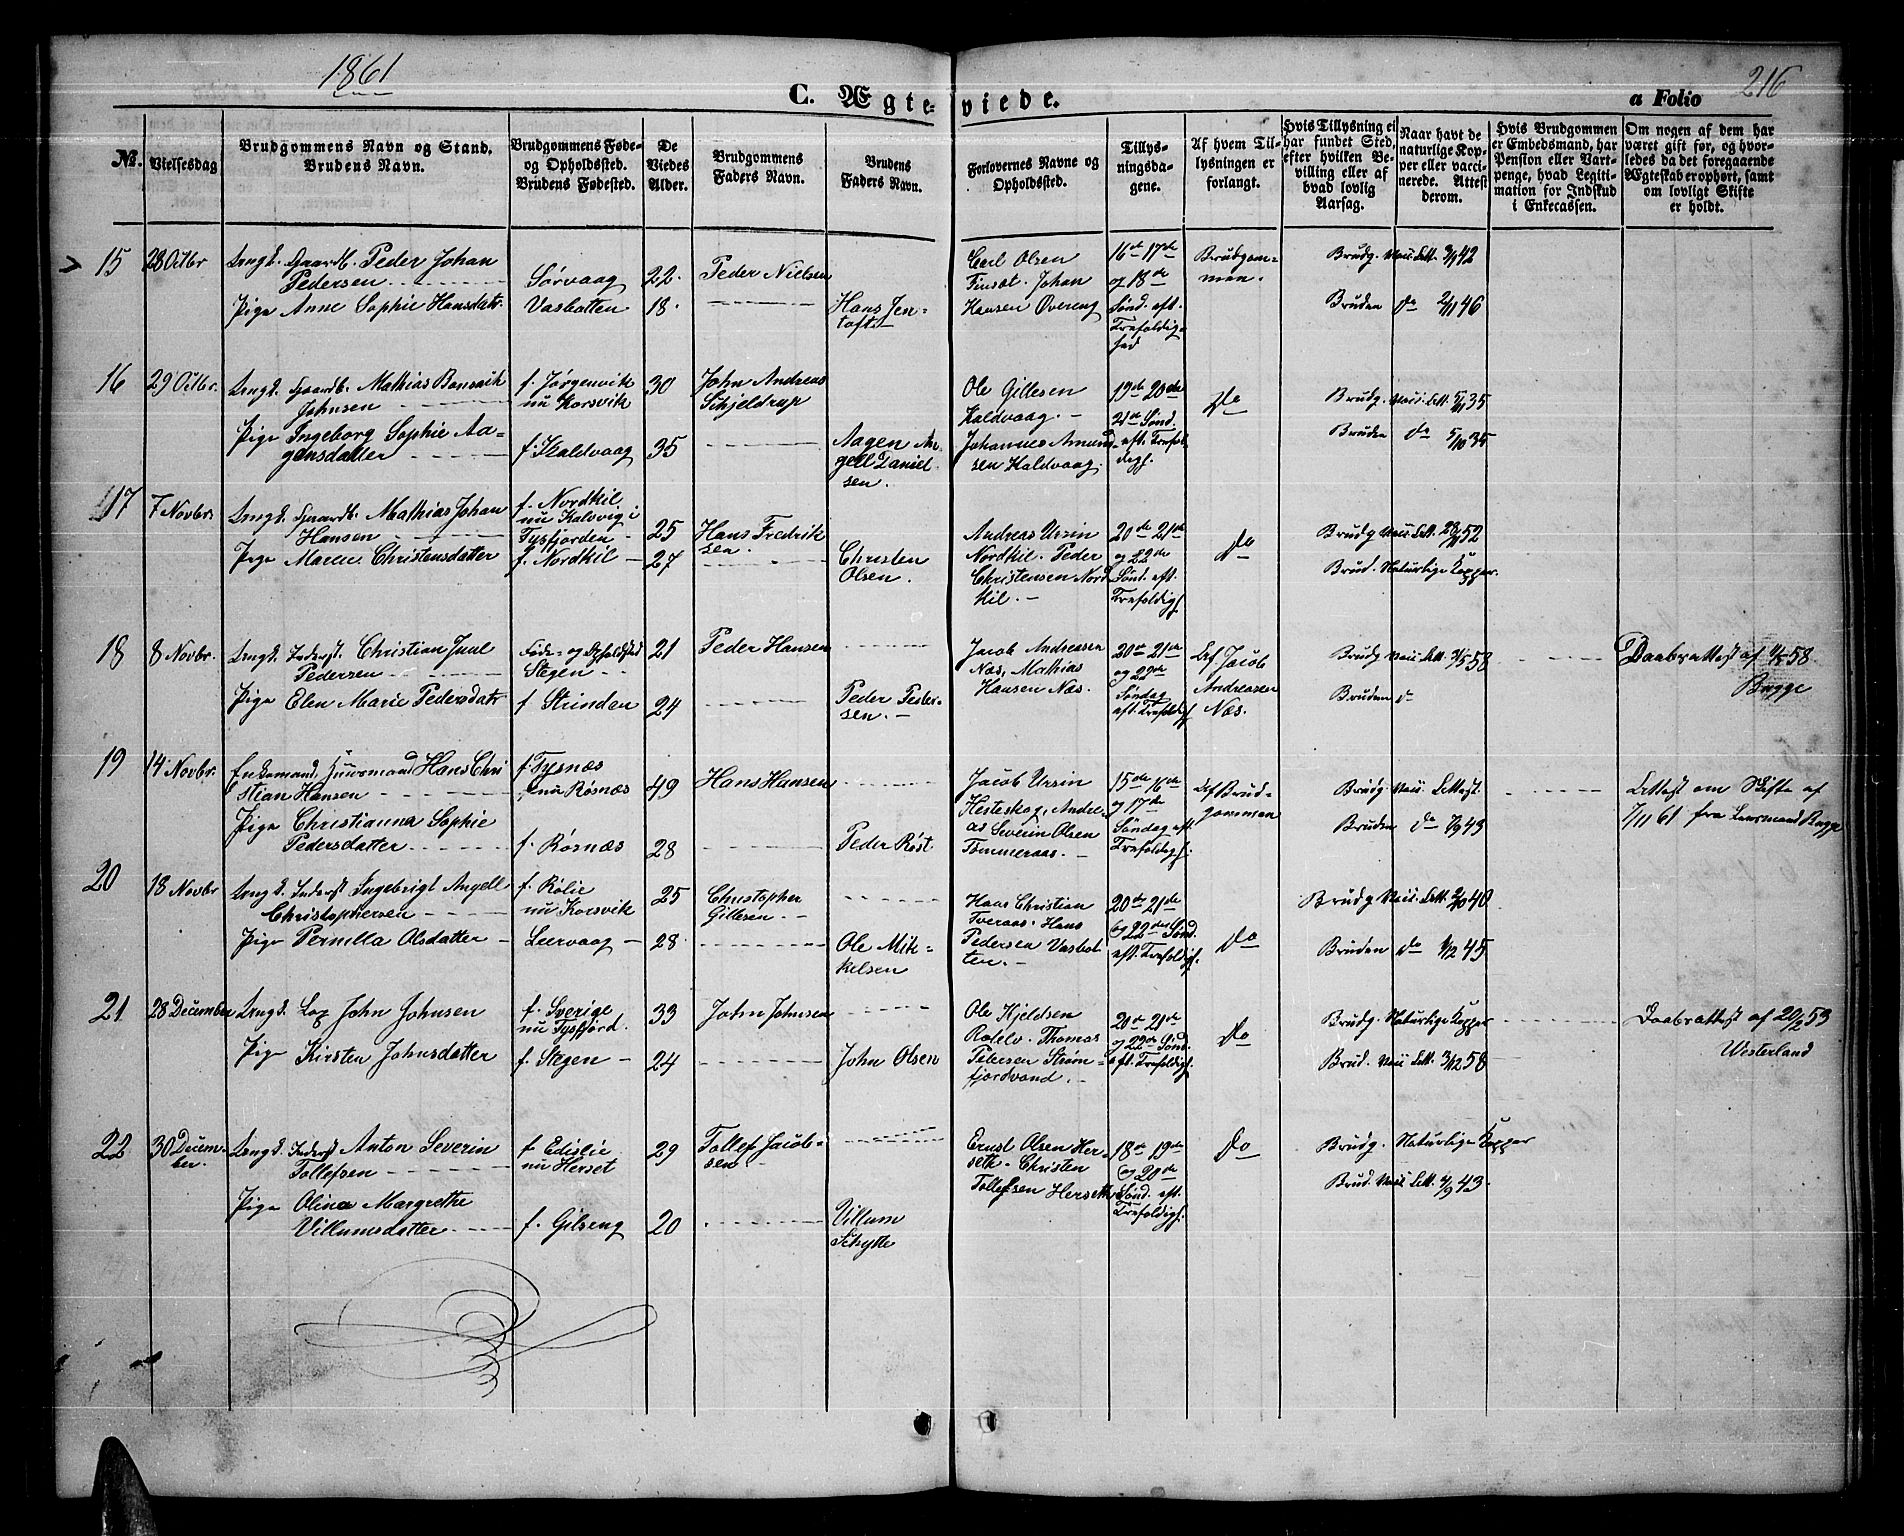 1861
216
C. Ægteviede.
a Folio
No.
Vielsesdag
Brudgommens Navn og Stand,
Brudens Navn.
Brudgommens Føde-
og Opholdssted.
Brudens Fødested.
De
Viedes
Alder.
Brudgommens
Faders Navn.
Brudens
Faders Navn.
Forlovernes Navne og
Opholdssted.
Tillys-
ningsda-
gene.
Af hvem Til-
lysningen er
forlangt.
Hvis Tillysning ei
har fundet Sted,
efter hvilken Be-
villing eller af
hvad lovlig
Aarsag.
Naar havt de
naturlige Kop-
per eller vacci-
nerede. Attest
derom.
Hvis Brudgommen
er Embedsmand, har
Pension eller Vart-
penge, hvad Legiti-
mation for Indskud
i Enkecassen.
Om nogen af dem har
været gift for, og hvor-
ledes da det foregaaende
Ægteskab er ophørt, samt
om lovligt Skifte
er holdt.
15 28 Octbr Ungk. Gaardb. Peder Johan
Pedersen Sørvaag 22. Peder Nielsen
Pige Anne Sophie Hansdatr. Vasbotten 18. Hans Jen-
toft
Carl Olsen
Finsæt. Johan
Hansen Overeng
16de 17de
og 18de
Sønd. eft.
Trefoldig-
hed
Brudgom-
men.
Brudg. Vacc. Att. 3/9 42
Bruden do 2/11 46
16 29 Octbr. Ungk. Gaardb. Mathias Bonsach
Johnsen
f. Jørgenvik
nu Korsvik
30 John Andreas
Schjeldrup
Pige Ingeborg Sophie Aa-
gensdatter f. Kaldvaag 35 Aagen An-
gell Daniel-
sen.
Ole Gillesen
Kaldvaag.
Johannes Amund-
sen Kaldvaag.
19de 20de
21de Sønd.
eft. Trefol-
digh.
Do
Brudg. Vacc. Att. 35
Bruden do 5/10 35
17 7 Novbr. Ungk. Gaardb. Mathias Johan
Hansen
f. Nordkil
nu Kalvvig i
Tysfjorden
25 Hans Fredrik-
sen.
Pige Maren Christensdatter f. Nordkil 27 Christen
Olsen.
Andreas Ursin
Nordkil. Peder
Christensen Nord-
kil.
20de 21de
og 22de
Sønd. eft.
Trefoldigh.
Do
Brudg Vacc. Att. 52
Brud. Naturlige Kopper.
18 8 Novbr. Ungk. Inderst. Christian Juul
Pedersen
Føde- og Opholdsted
Stegen
21 Peder Hansen
Pige Elen Marie Pedersdatr f Strinden 24 Peder Peder-
sen.
Jacob Andreasen
Næs, Mathias
Hansen Næs.
20de 21de
og 22de
Søndag
eft. Trefoldigh
Af Jacob
Andreasen
Næs.
Brudg Vacc. Att. 31/5 58
Bruden do
Daabsattest af 58
Bugge
19 14 Novbr. Enkemand, Huusmand Hans Chri
stian Hansen
f. Tysnæs
nu Røsnæs
49 Hans Hansen
Pige Christianna Sophie
Pedersdatter f. Røsnæs 28 Peder Røst.
Jacob Ursin
Hesteskog, Andre-
as Severin Olsen
Tømmeraas.
15de 16de
og 17de
Søndag eft.
Trefoldigh.
Af Brud-
gommen
Brudg. Vacc. Attest.
Bruden do 43
Attest om Skifte af
7/11 61 fra Lensmand Bugge
20 18 Novbr Ungk. Inderst Ingebrigt Angell
Christophersen
f. Rølie
nu Korsvik
25 Christopher
Gillesen
Pige Pernilla Olsdatter Leervaag 28 Ole Mik-
kelsen
Hans Christian
Tveraas. Hans
Pedersen Vasbot-
ten.
20de 21de
og 22de Sønd.
eft. Trefoldigh.
Do
Brudg Vacc. Att. 40
Bruden do 45
21 28 December Ungk. Lap John Johnsen
f. Sverige
nu Tysfjord.
33 John Johnsen
Pige Kirsten Johnsdatter f. Stegen 24 John Olsen
Ole Kjeldsen
Rotelv. Thomas
Petersen Strøm-
fjordvand.
20de 21de
og 22de Sønd.
eft. Trefoldigh.
Do
Brudg. Naturlige Kopper
Brud. Vacc Att. 58
Daabsattest af 20/2 53
Westerland
22 30 Decem-
ber. Ungk. Inderst Anton Severin
Tollefsen
f Edislie
nu Herset
29 Tollef Jacob-
sen
Pige Olina Margrethe
Villumsdatter f. Gilseng 20 Villum
Schytte
Ernst Olsen Her-
seth. Christen
Tollefsen Herseth
18de 19de
og 20de
Sønd. eft.
Trefoldigh.
Do
Brudg. Naturlige Kopper
Brud. Vacc. Att. 43.